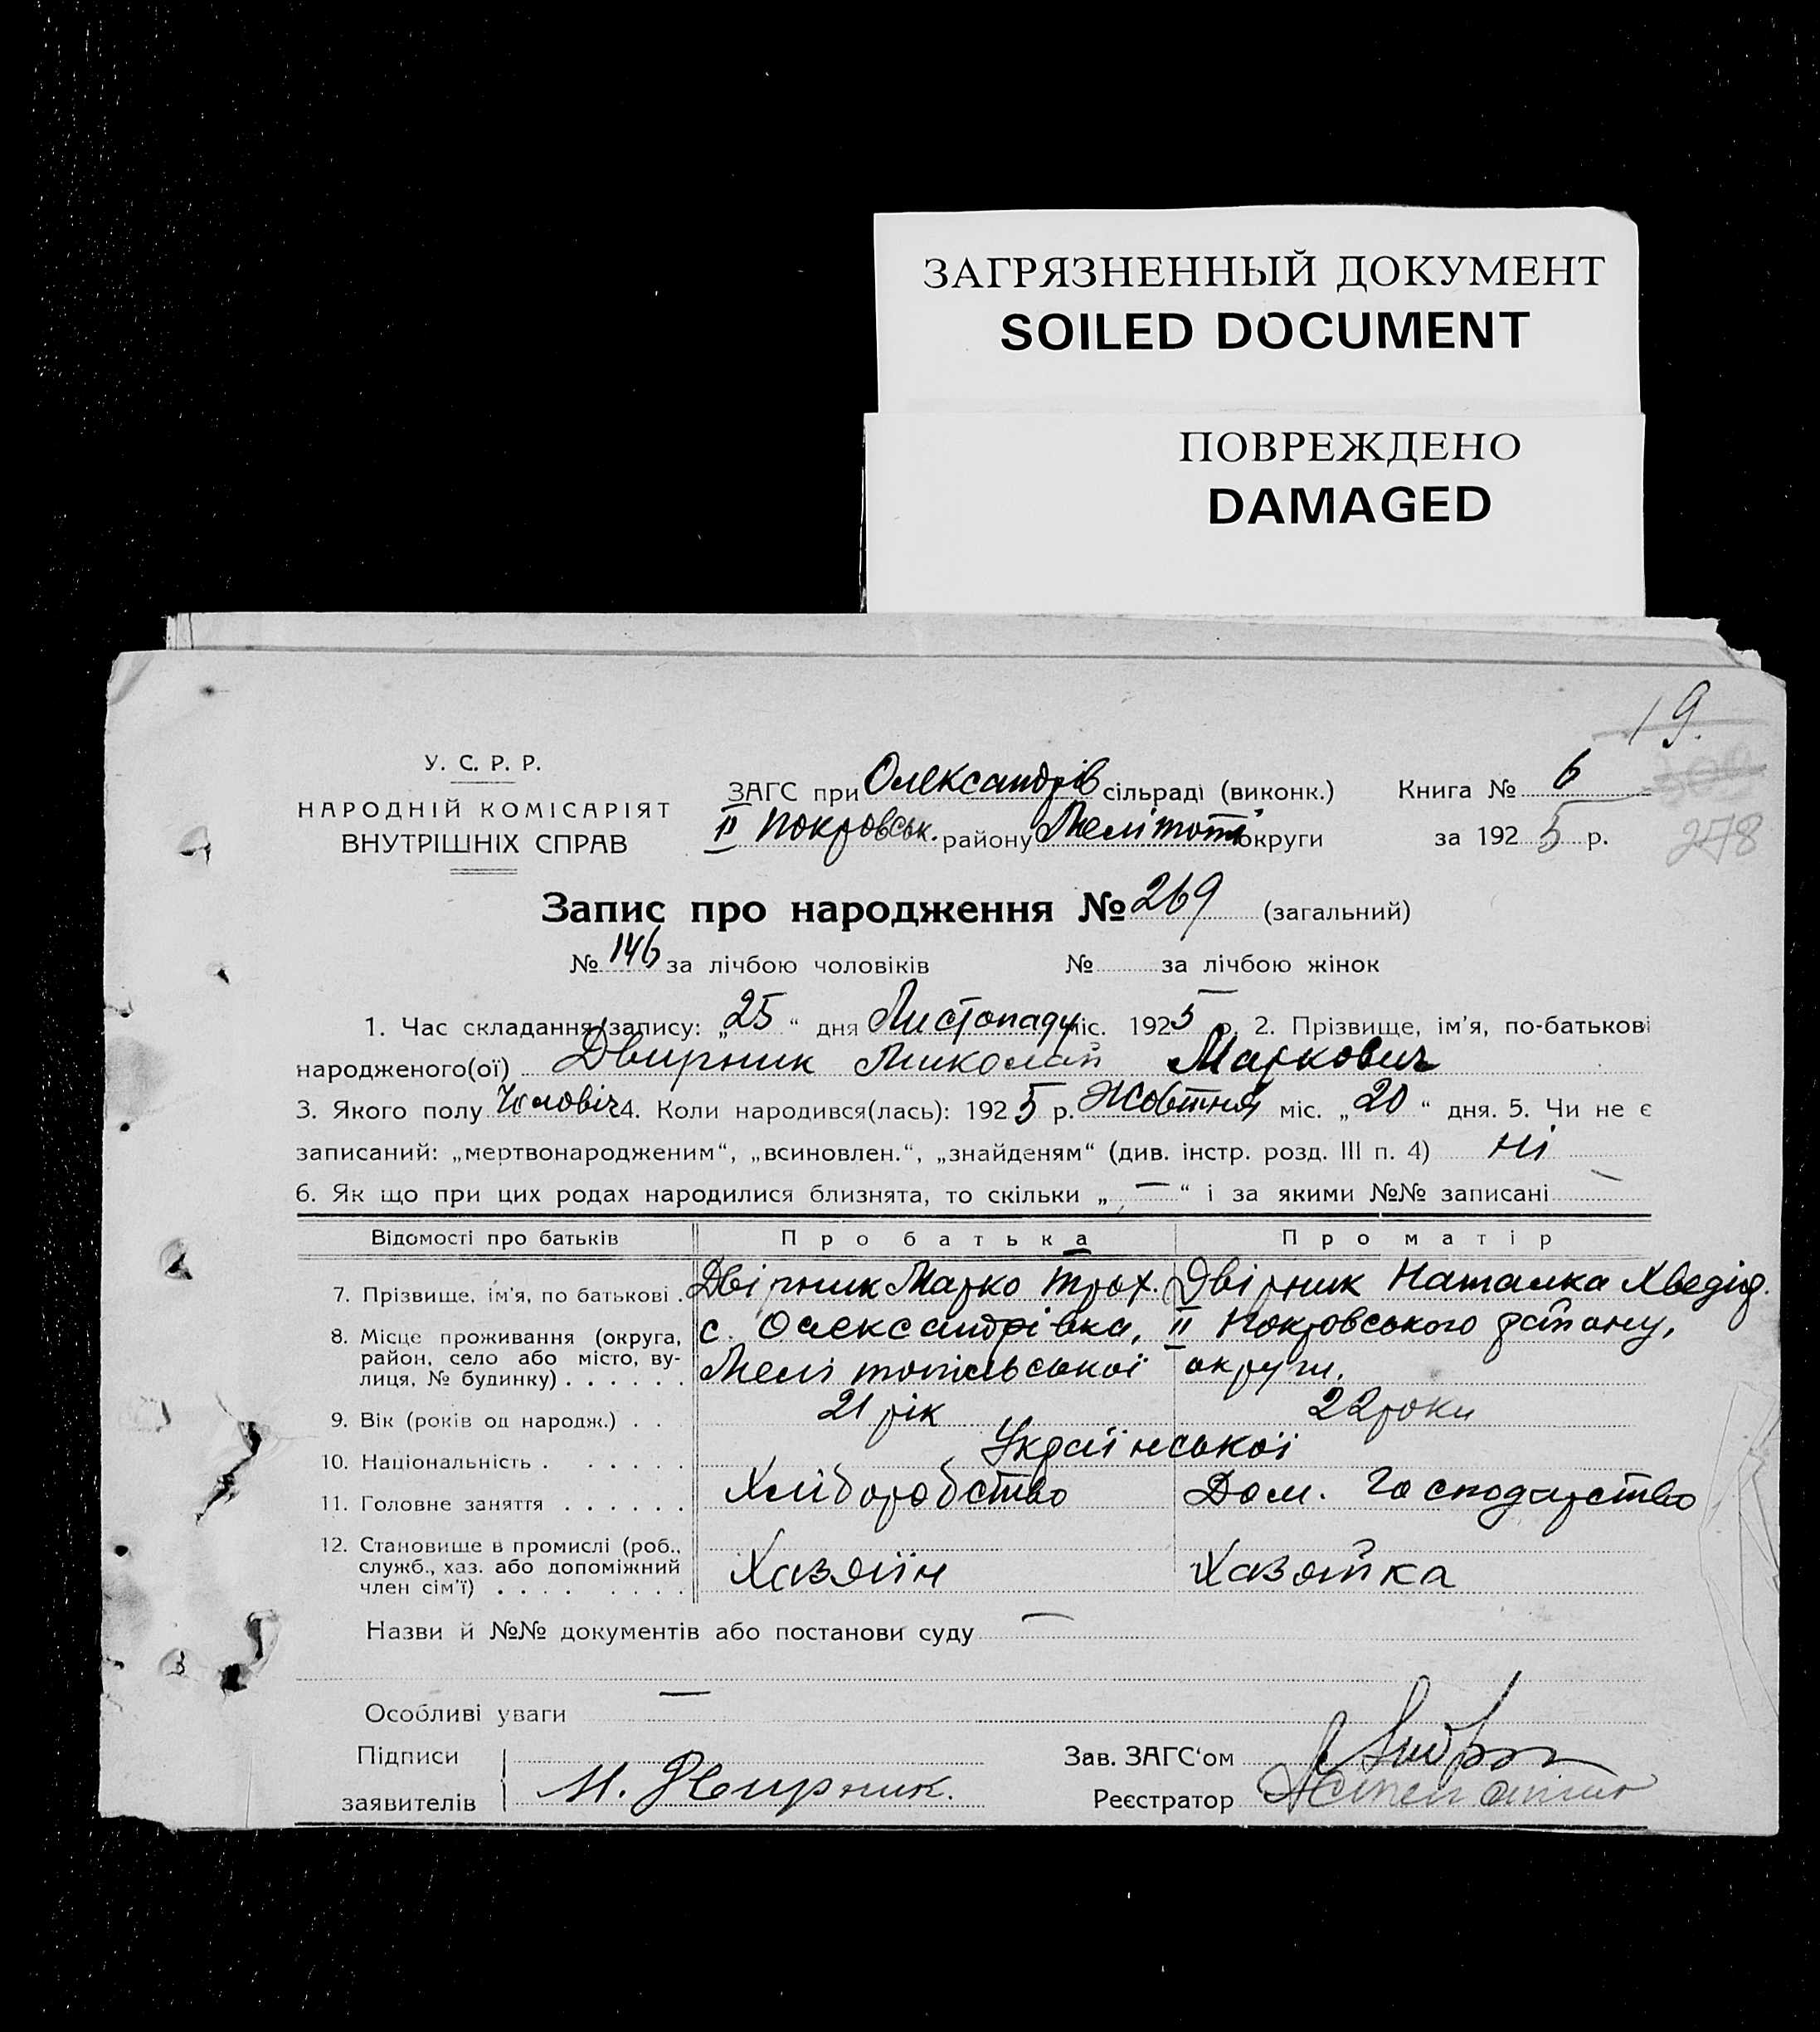 ЗАГРЯЗНЕННЫЙ ДОКУМЕНТ
SOILED DOCUMENT
ПОВРЕЖДЕНО
DAMAGED
19.
У. С. Р. Р.
НАРОДНІЙ КОМІСАРІЯТ
ВНУТРІШНІХ СПРАВ
ЗАГС при Олександрів сільраді (виконк.)
II Покровськ. району Мелітоп округи
Книга № 6
за 1925 р.
278
Запис про народження № 269 (загальний)
№ 146 за лічбою чоловіків № за лічбою жінок
1. Час складання запису: „25“ дня Листопаду міс. 1925 р. 2. Прізвище, ім'я, по-батькові
народженого(ої) Двирник Миколай Маркович
3. Якого полу Чоловіч 4. Коли народився(лась): 1925 р. Жовтня міс. „20“ дня. 5. Чи не є
записаний: „мертвонародженим“, „всиновлен.“, „знайденям“ (див. інстр. розд. III п. 4) Ні
6. Як що при цих родах народилися близнята, то скільки „—“ і за якими №№ записані —
Відомості про батьків Про батька Про матір
7. Прізвище, ім'я, по батькові . Двірник Марко Трох. Двірник Наталка Хведір.
8. Місце проживання (округа, район, село або місто, вулиця, № будинку) . . . . . . с. Олександрівка, II Покровського району,
Мелітопільської округи.
9. Вік (років од народж.) . . 21 рік 22 роки
10. Національність . . . . . . Української
11. Головне заняття . . . . . . Хліборобство Дом. Господарство
12. Становище в промислі (роб., служб., хаз. або допоміжний член сім'ї) . . . . . . . . Хазяїн Хазяйка
Назви й №№ документів або постанови суду —
Особливі уваги —
Підписи
заявителів М. Двирник.
Зав. ЗАГС'ом
Реєстратор